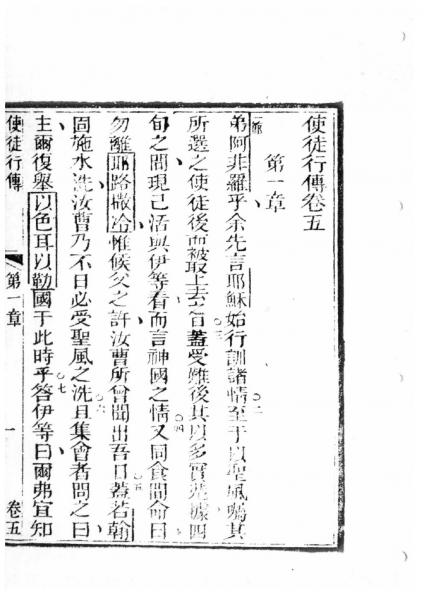 使徒行傳卷五
第一章
弟阿非羅乎余先言耶穌始行訓諸情至于以聖風囑其
所選之使徒後而被取上去者蓋受難後其以多實憑據四
旬之間現己活與伊等看而言神國之情又同食間命曰
勿離耶路撒冷惟候父之許汝曹所曾聞出吾口蓋若翰
固施水洗汝曹乃不日必受聖風之洗且集會者問之曰
主爾復舉以色耳以勒國于此時乎答伊等曰爾弗宜知
使徒行傳 第一章 一 卷五